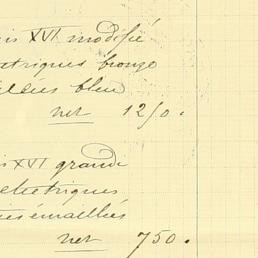 is XVI modifié
ctriques bronze
bleu
net 1250.
is XVI grandi
électriques
émaillées
net 750.